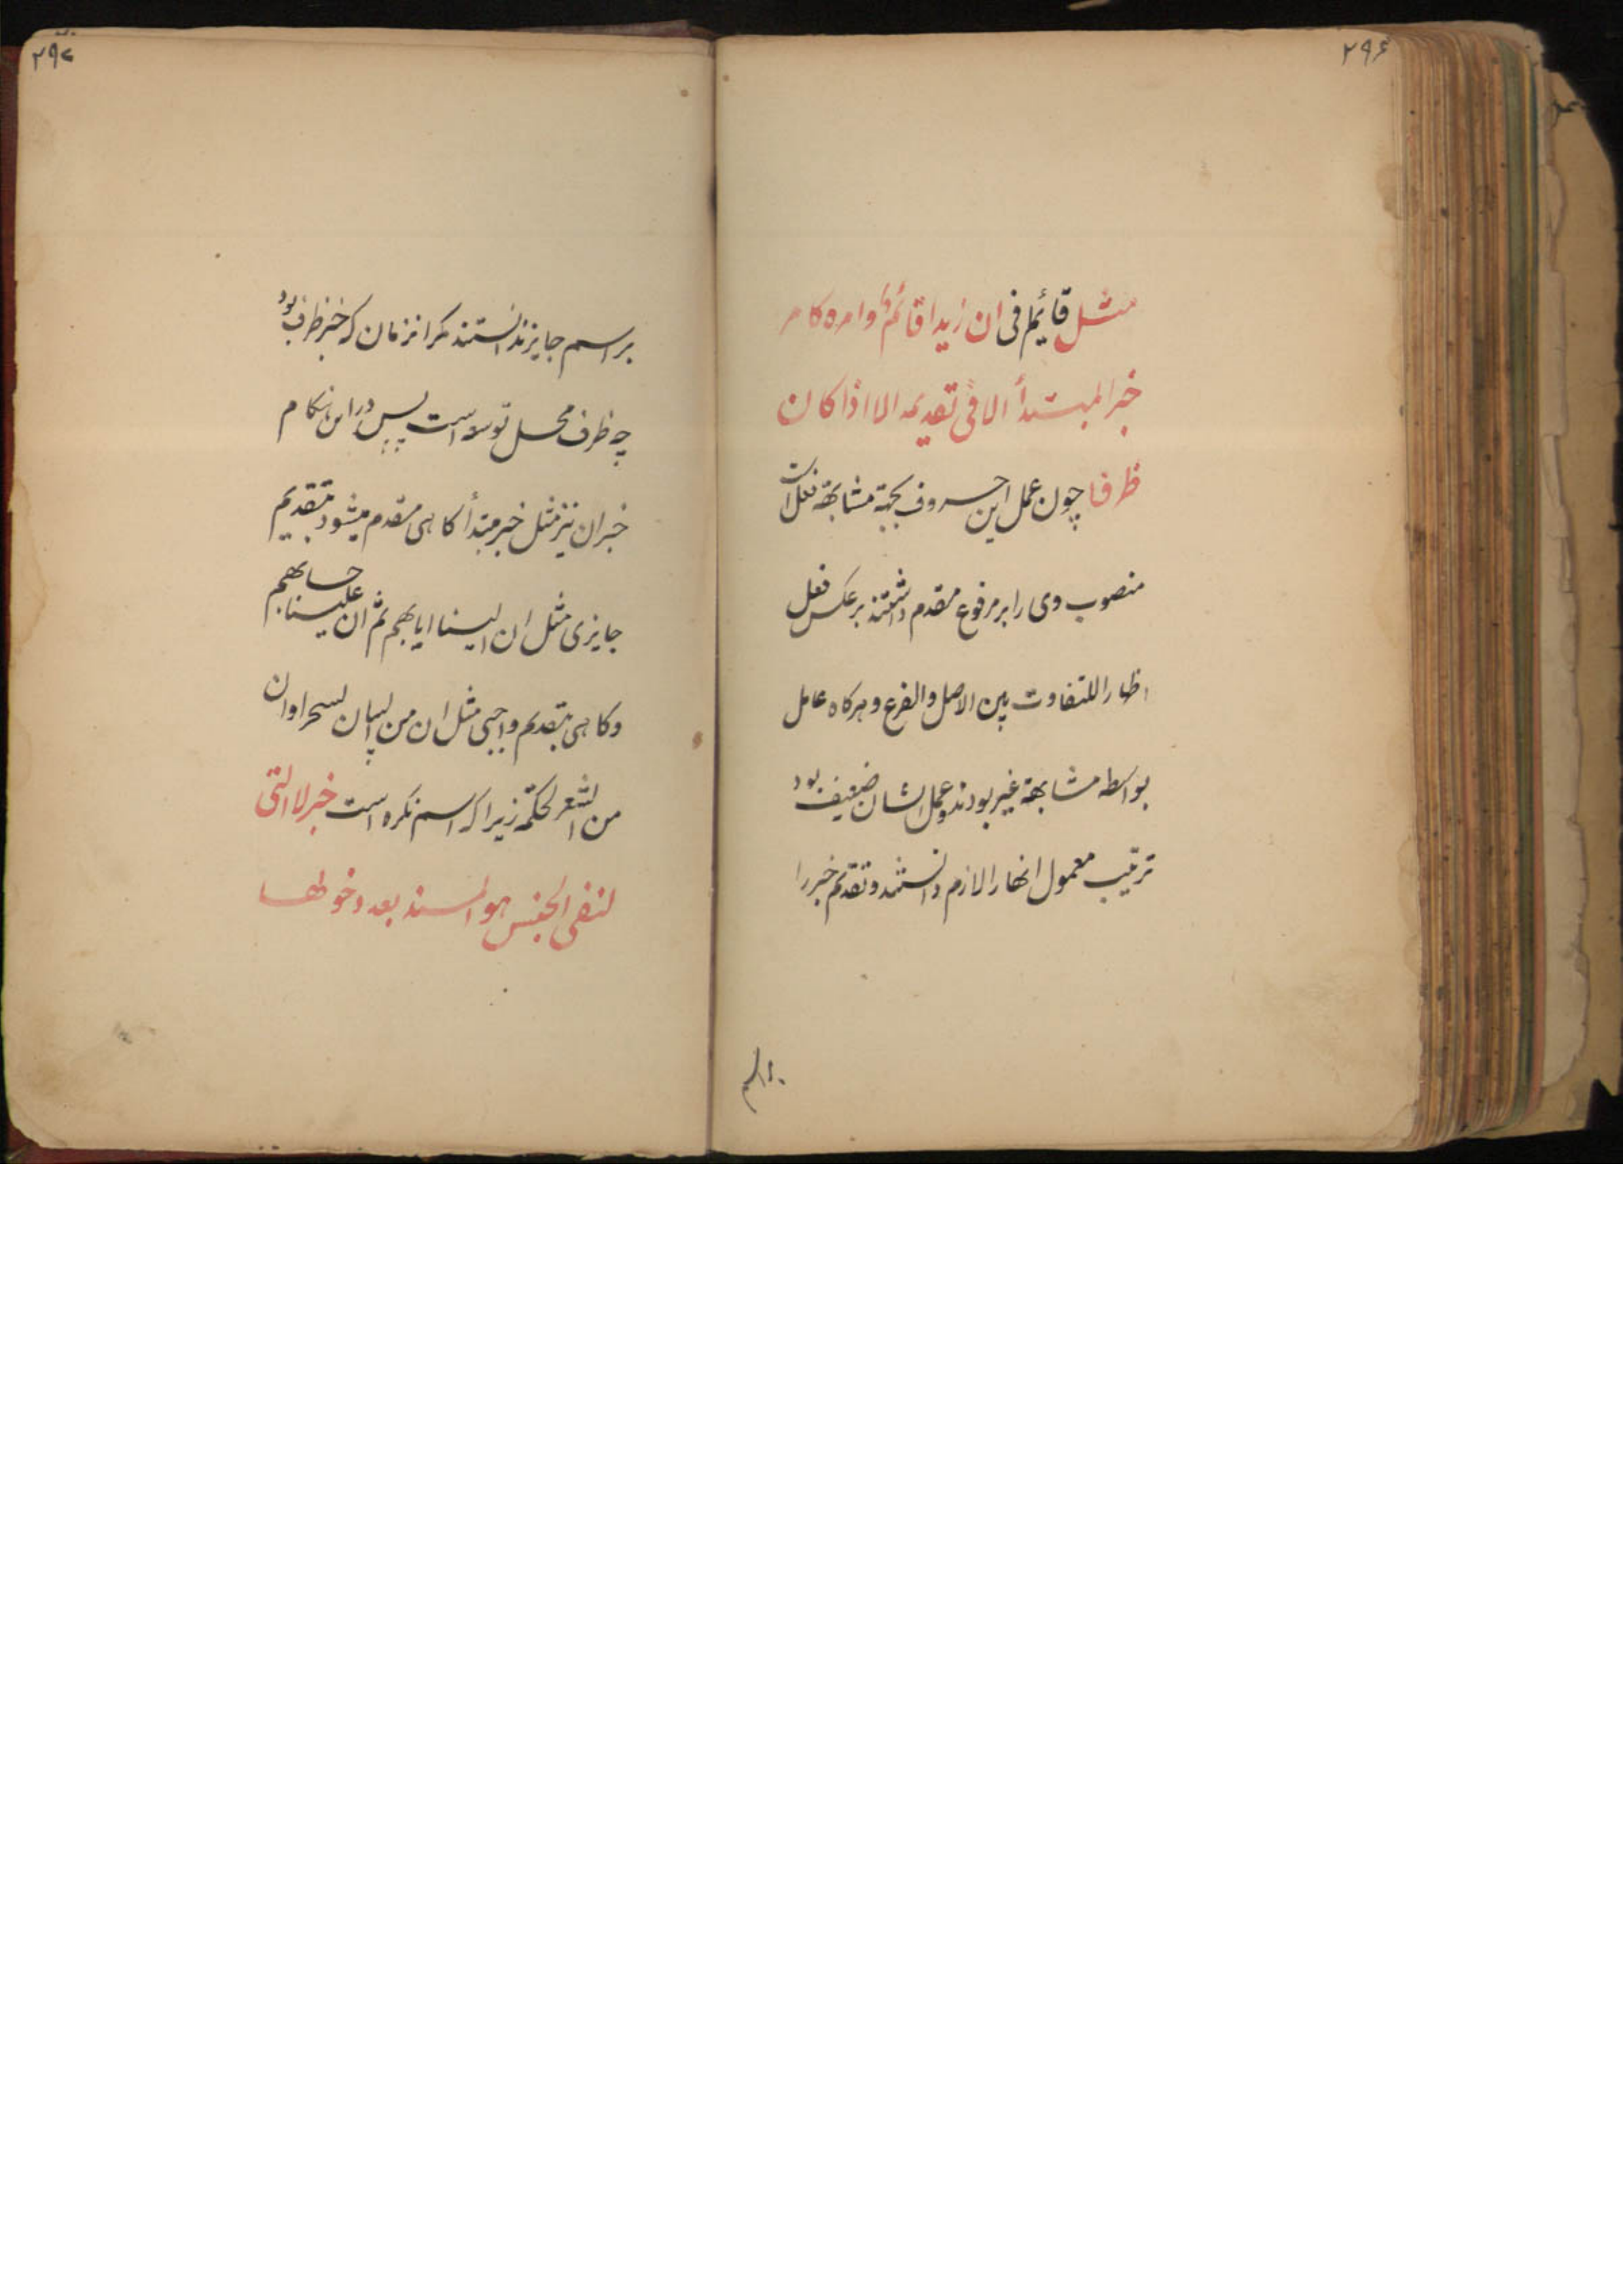 ۲۹۶
مثل قائم فی ان زیدا قائم وامره کامر
خبر المبتدأ الا فی تقدیمه الا اذا کان
ظرفا چون عمل این حروف بجهة مشابهة فعل است
منصوب وی را بر مرفوع مقدم داشتند بر عکس فعل
اظهارا للتفاوت بین الاصل والفرع و هرکاه عامل
بواسطه مشابهة غیر بودند و عمل ایشان ضعیف بود
ترتیب معمول انها را لازم دانستند و تقدیم خبر را
۲۹۷
بر اسم جایز ندانستند مکر انزمان که خبر ظرف بود
چه ظرف محل توسعه است پس در این هنکام
خبر ان نیز مثل خبر مبتدأ کاهی مقدم میشود بتقدیم
جایزی مثل ان الینا ایابهم ثم ان علینا حسابهم
وکاهی بتقدیم واجبی مثل ان من البیان لسحرا وان
من الشعر لحکمة زیرا که اسم نکره است خبر لا التی
لنفی الجنس هو المسند بعد دخولها